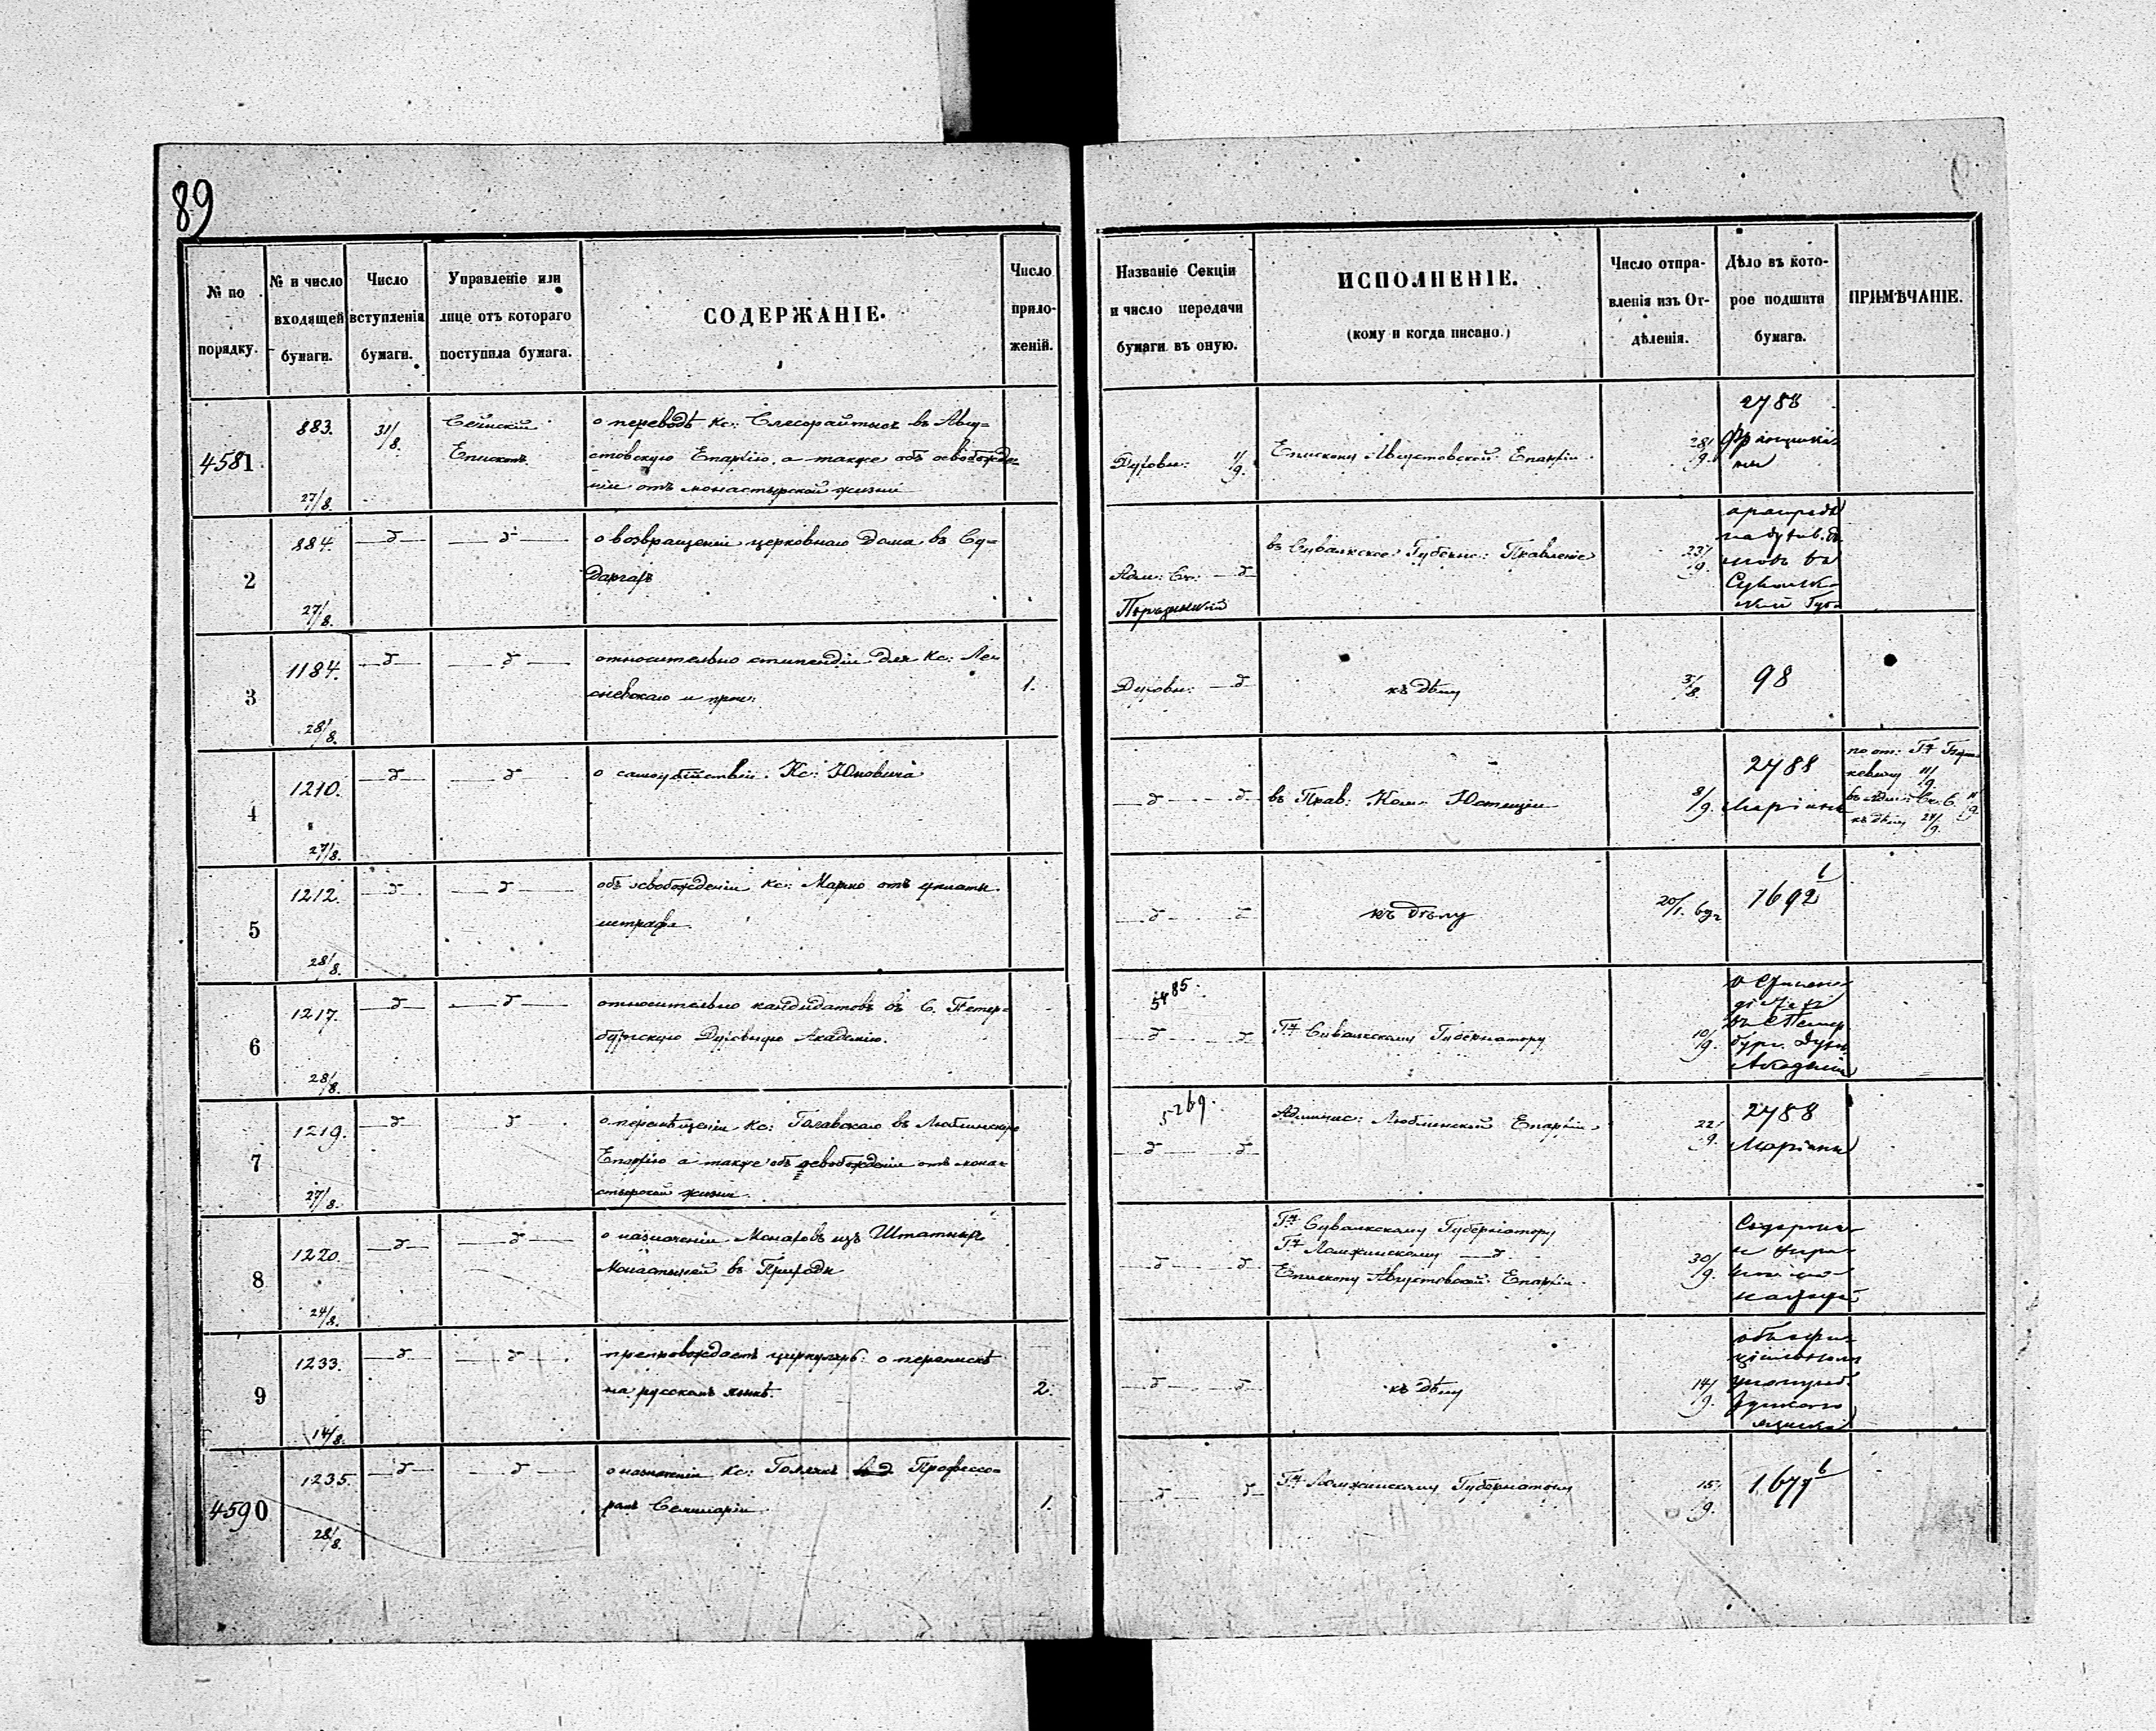 89
№ по порядку.
№ и число входящей бумаги.
Число вступленія бумаги.
Управленіе или лице отъ котораго поступила бумага.
СОДЕРЖАНІЕ.
Число приложеній.
Названіе Секціи и число передачи бумаги въ оную.
ИСПОЛНЕНІЕ.
(кому и когда писано.)
Число отправленія изъ Отдѣленія.
Дѣло въ которое подшита бумага.
ПРИМѢЧАНІЕ.
4581
883.
27/8.
31/8.
Сейнскій
Епископъ
о переводѣ Кс: въ Авгу=
стовскую Епархію, а также объ освобожде=
ніи отъ монастырской жизни
Духовн: 1/9.
Епископу Августовской Епархіи.
28/9.
2788
2
884.
27/8.
—д— —д—
о возвращеніи церковнаго дома въ Су=
даргахъ
Адм: Ск: —д—
въ Сувалкское Губернс: Правленіе
23/9.
3
1184.
28/8.
—д— —д—
относительно стипендіи для Кс: Ле=
сневскаго и проч:
1.
Духовн: —д—
къ дѣлу
3/8.
98
4
1210.
27/8.
—д— —д—
о самоубійствѣ Кс: Юновича
—д— —д—
въ Прав: Ком: Юстиціи
8/9.
2788
Маріяны
къ дѣлу
5
1212.
28/8.
—д— —д—
объ освобожденіи Кс: Марко отъ уплаты
штрафа
—д— —д—
къ дѣлу
20/1. 69 г
1692
6
1217.
28/8.
—д— —д—
относительно кандидатовъ въ С. Петер=
бургскую Духовную Академію.
5485.
—д— —д—
Гну Сувалкскому Губернатору
10/9.
въ С Петер
бург. Духов
Академіи
7
1219.
27/8.
—д— —д—
о перемѣщеніи Кс: Голавскаго въ Люблинскую
Епархію а также объ освобожденіи отъ мона=
стырской жизни
5269.
—д— —д—
Админис: Люблинской Епархіи
22/9.
2788
Маріяны
8
1220.
24/8.
—д— —д—
о назначеніи Монаховъ изъ Штатныхъ
Монастырей въ Приходы
—д— —д—
Гну Сувалкскому Губернатору
Гну Ломжинскому —д—
Епископу Августовской Епархіи.
30/9.
9
1233.
14/8.
—д— —д—
препровождаетъ циркуляръ: о перепискѣ
на русскомъ языкѣ.
2.
—д— —д—
къ дѣлу
14/9.
4590
1235.
28/8.
—д— —д—
о назначеніи Кс: Профессо=
ромъ Семинаріи
1.
—д— —д—
Гну Ломжинскому Губернатору
15/9.
1677